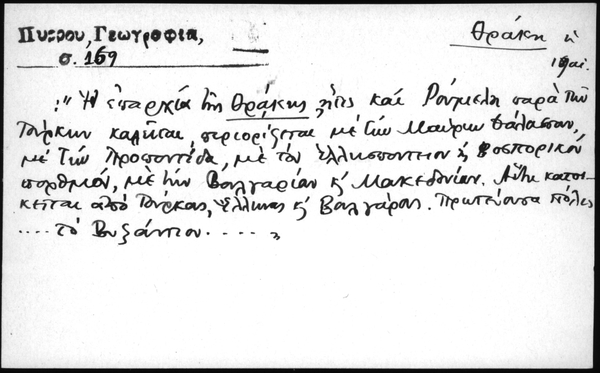 Πυρρου, Γεωγραφια, Θράκη
σ. 169
:" Ἡ ἐπαρχία τῆς Θράκης, ἥτις καὶ Ρούμελη παρὰ τῶν
Τούρκων καλεῖται περιορίζεται μὲ τὴν Μαύρην θάλασσαν,
μὲ τὴν Προποντίδα, μὲ τὸν Ἑλλησποντιον ἢ Βοσπορικὸν
πορθμόν, μὲ τὴν Βουλγαρίαν κ' Μακεδονίαν. Αὕτη κατοι-
κεῖται ἀπὸ Τούρκους, Ἕλληνας κ' Βουλγάρους. Πρωτεύουσα πόλις
.... τὸ Βυζάντιον ..... "